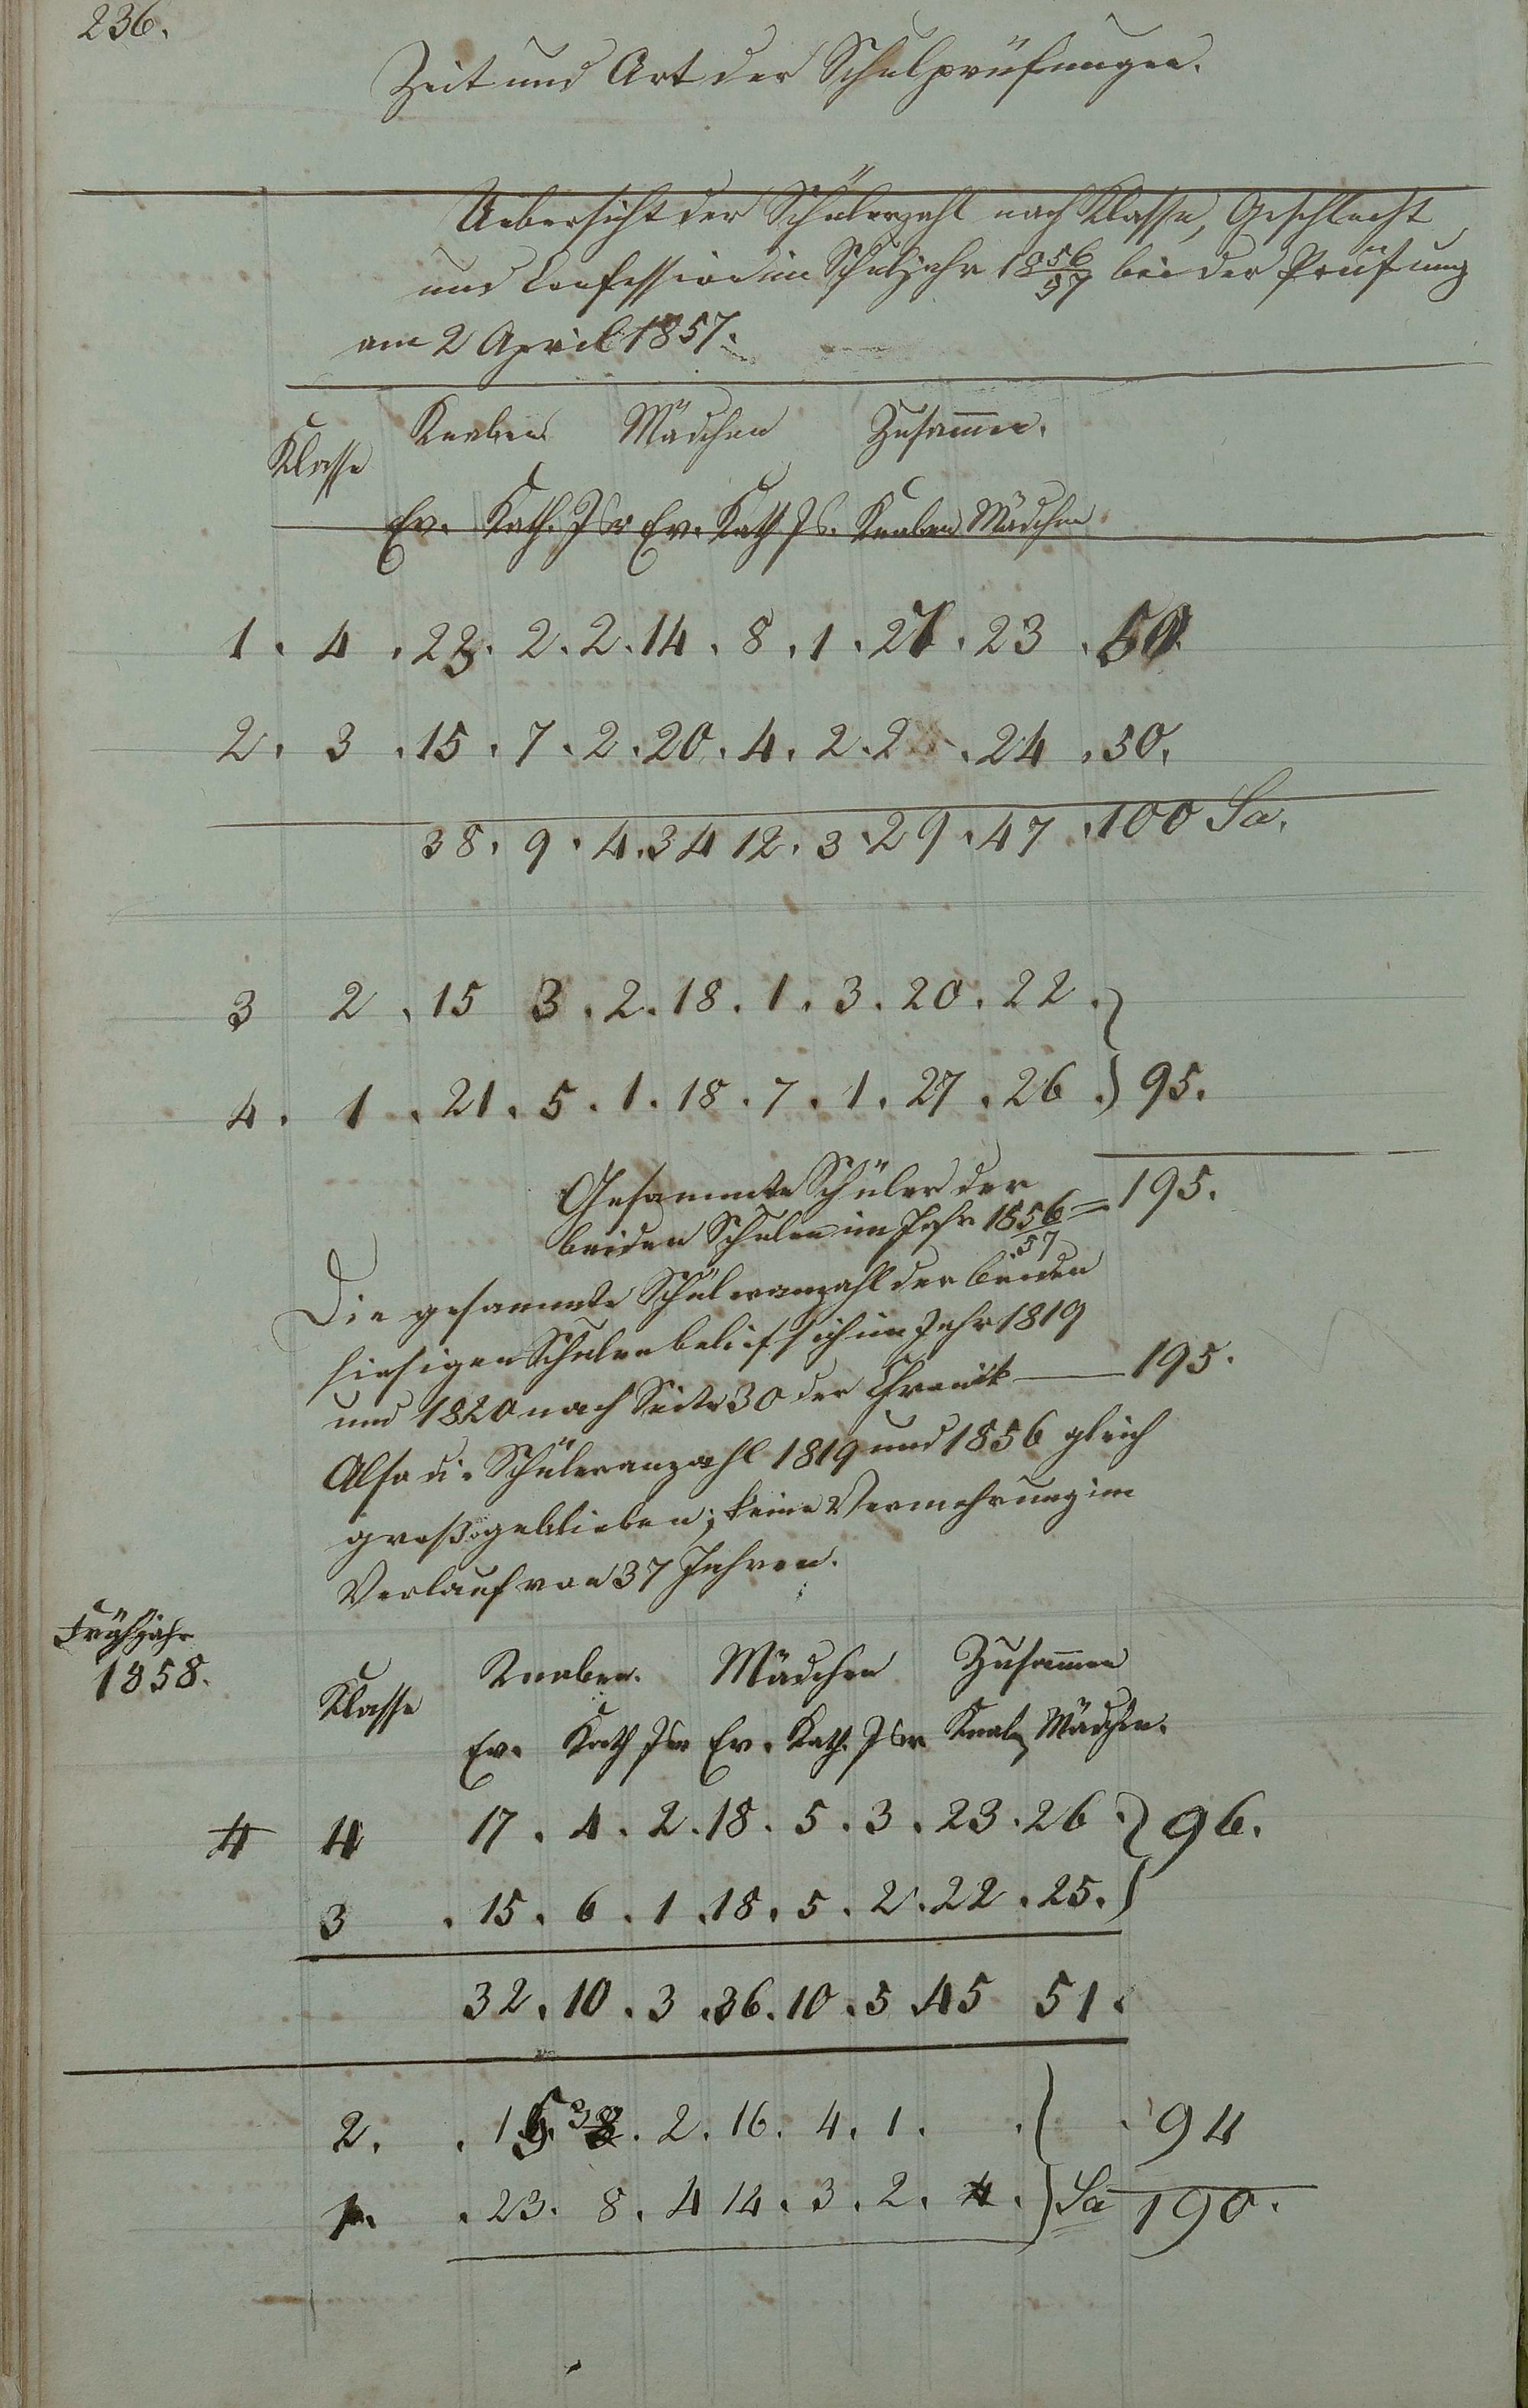 236.
Zeit und Art der Schulprüfungen.
Uebersicht der Schülerzahl nach Klasse, Geschlecht
und Confession im Schuljahr 1856/57 bei der Prüfung
am 2 April 1857.
Klasse Knaben Mädchen Zusammen.
Ev. Kath. Isr Ev. Kath Is. Knaben Mädchen
1. 4 . 23. 2. 2. 14. 8. 1. 27. 23 . 50.
2. 3 . 15. 7. 2. 20. 4. 2. 2 . 24 . 50.
38. 9. 4. 34 12. 3. 29. 47. 100 Sa.
3 2 . 15 3. 2. 18. 1. 3. 20. 22.
4. 1 . 21. 5. 1. 18. 7. 1. 27. 26. 95.
Gesammte Schüler der
beiden Schulen im Jahr 1856/57 = 195.
Die gesammte Schüleranzahl der beiden
hiesigen Schulen belief sich im Jahr 1819
und 1820 nach Seite 30 der Chronik — 195.
Also die Schüleranzahl 1819 und 1856 gleich
groß geblieben; keine Vermehrung im
Verlauf von 37 Jahren.
Frühjahr
1858.
Klasse Knaben. Mädchen Zusammen
Ev. Kath Isr Ev. Kath. Isr Knab Mädchen.
4 4 17. 4. 2. 18. 5. 3. 23. 26. 96.
3 . 15. 6. 1. 18. 5. 2. 22. 25.
32. 10. 3. 36. 10. 5 45 51.
2. . 15. 3 . 2. 16. 4. 1. . 94
1. . 23. 8. 4 14. 3. 2. 4. Sa 190.